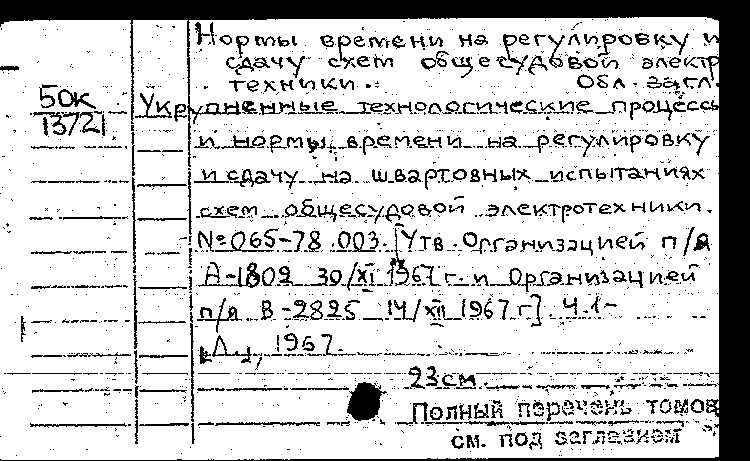 Нормы времени на регулировку и
сдачу схем общесудовой электр
техники. Обл. загл.
50к
13721
Укрупненные технологические процессы
и нормы времени на регулировку
и сдачу на швартовных испытаниях
схем общесудовой электротехники.
№ 065-78.003. [Утв. Организацией п/я
А-1802 30/XI 1967 г. и Организацией
п/я В-2825 14/XII 1967 г] Ч.1-
[Л.], 1967.
23см.
Полный перечень томов
см. под заглавием